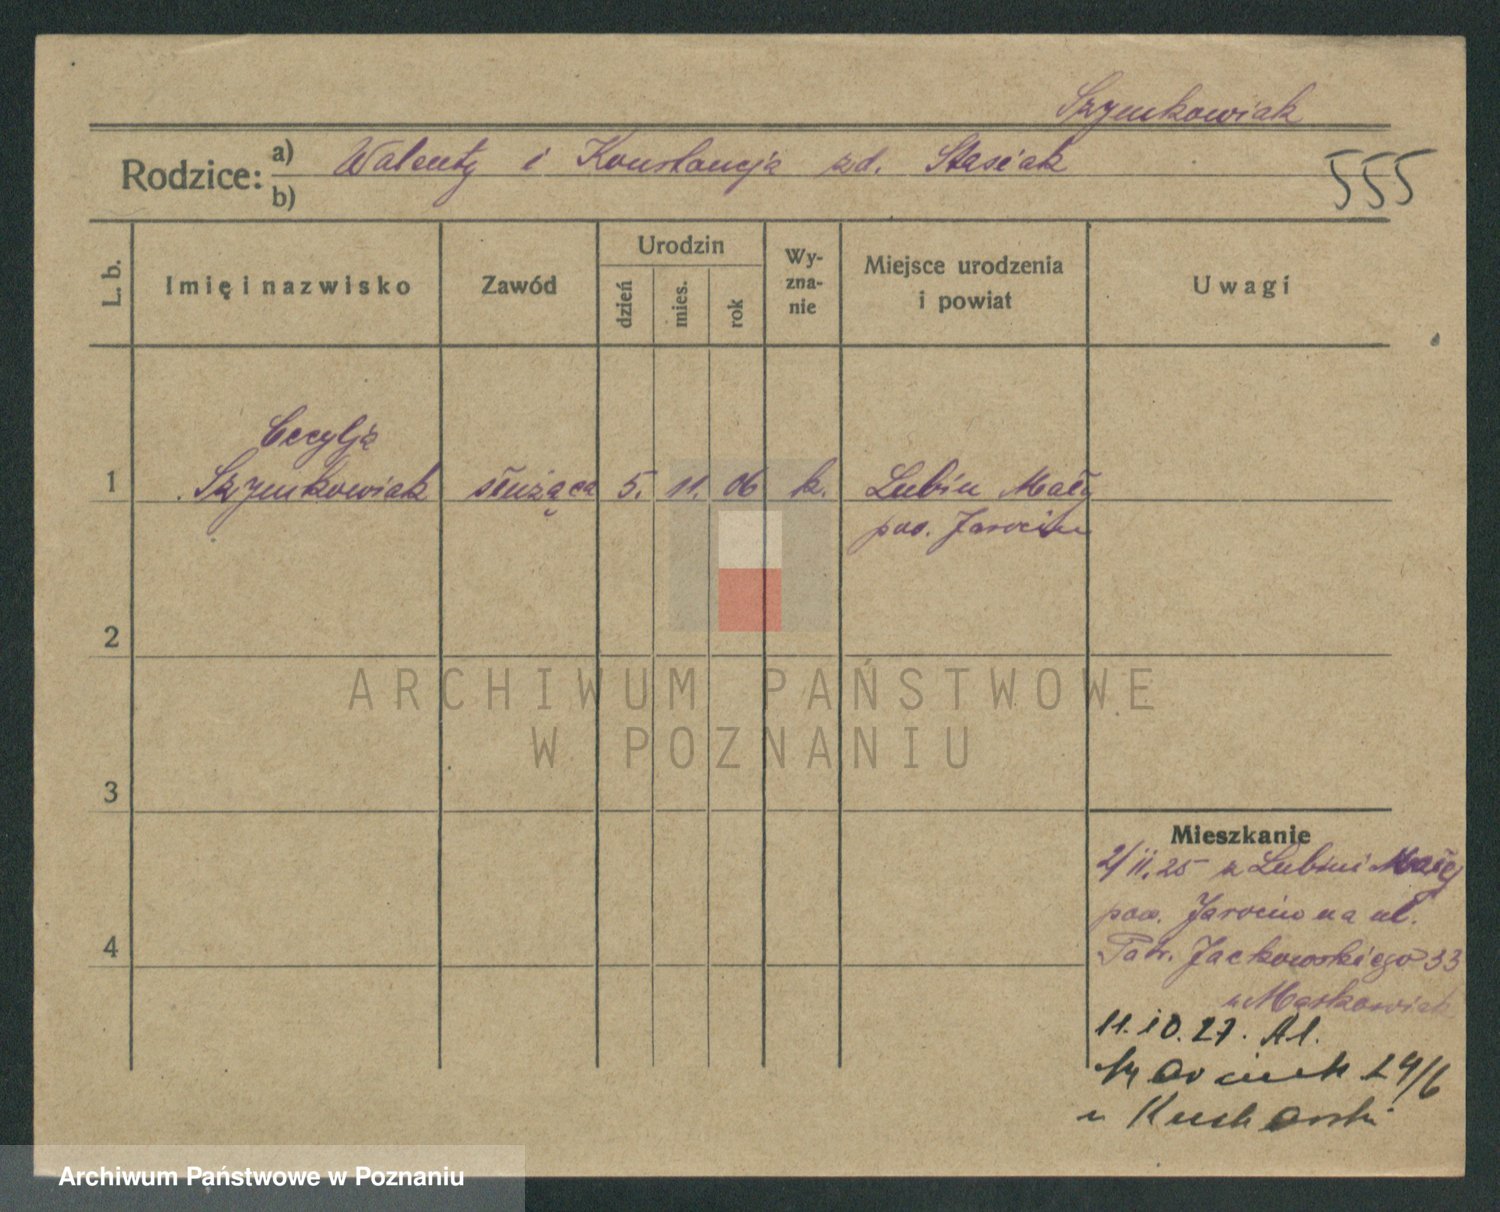 Szymkowiak
Rodzice: a) Walenty i Konstancja zd. Stasiak
b)
555
L. b.
Imię i nazwisko
Zawód
Urodzin
dzień
mies.
rok
Wy-
zna-
nie
Miejsce urodzenia
i powiat
Uwagi
Cecylja
1 Szymkowiak służąca 5. 11. 06 k. Lubin Mały
pow. Jarocin
2
ARCHIWUM PAŃSTWOWE
W POZNANIU
3
Mieszkanie
2/11.25 z Lubini Małej
pow. Jarocin na ul.
4
Patr. Jackowskiego 33
u Maskowiak
11.10.27. Al.
Marcink 29/6
u Kucharski
Archiwum Państwowe w Poznaniu